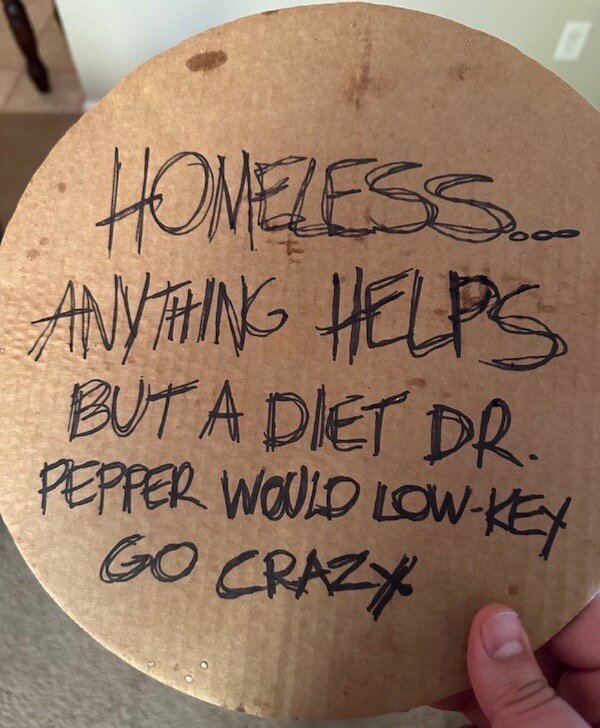 HOMELESS...
ANYTHING HELPS
BUT A DIET DR.
PEPPER WOULD LOW-KEY
GO CRAZY.